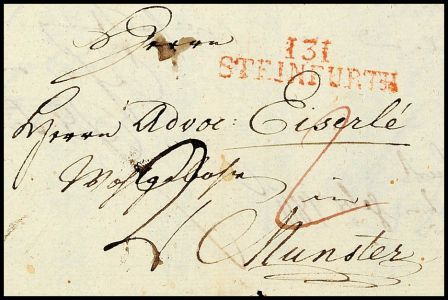 Herrn
131
STEINFURTH
Herrn Advoc: Eiserlé
Wohlgebohrn
in
2
Munster.